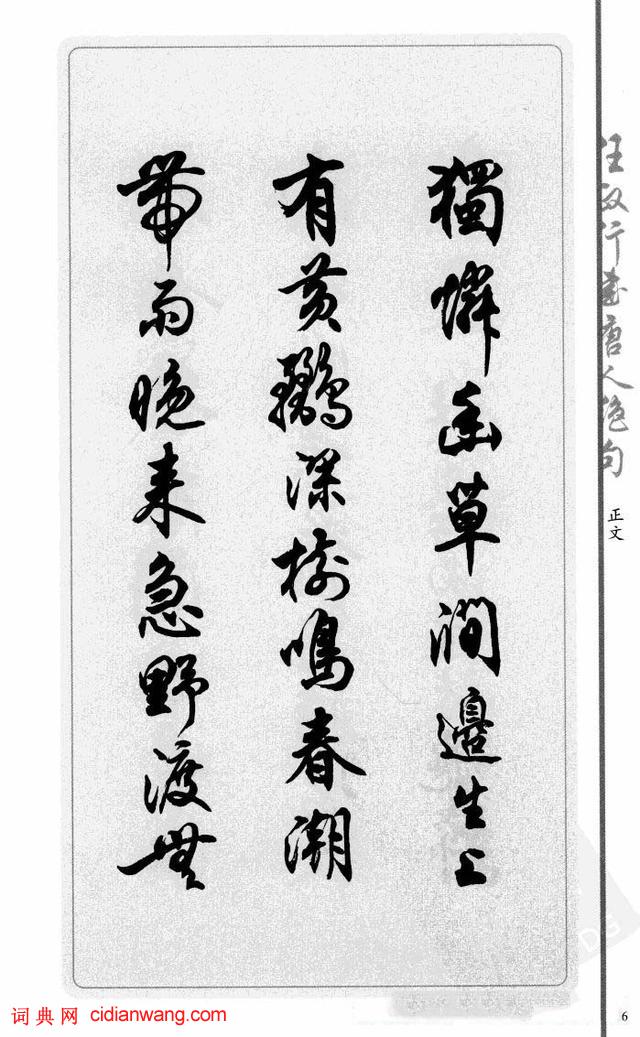 獨憐幽草澗邊生上
有黃鸝深樹鳴春潮
帶雨晚来急野渡無
任政行書唐人绝句
正文
6
词典网 cidianwang.com